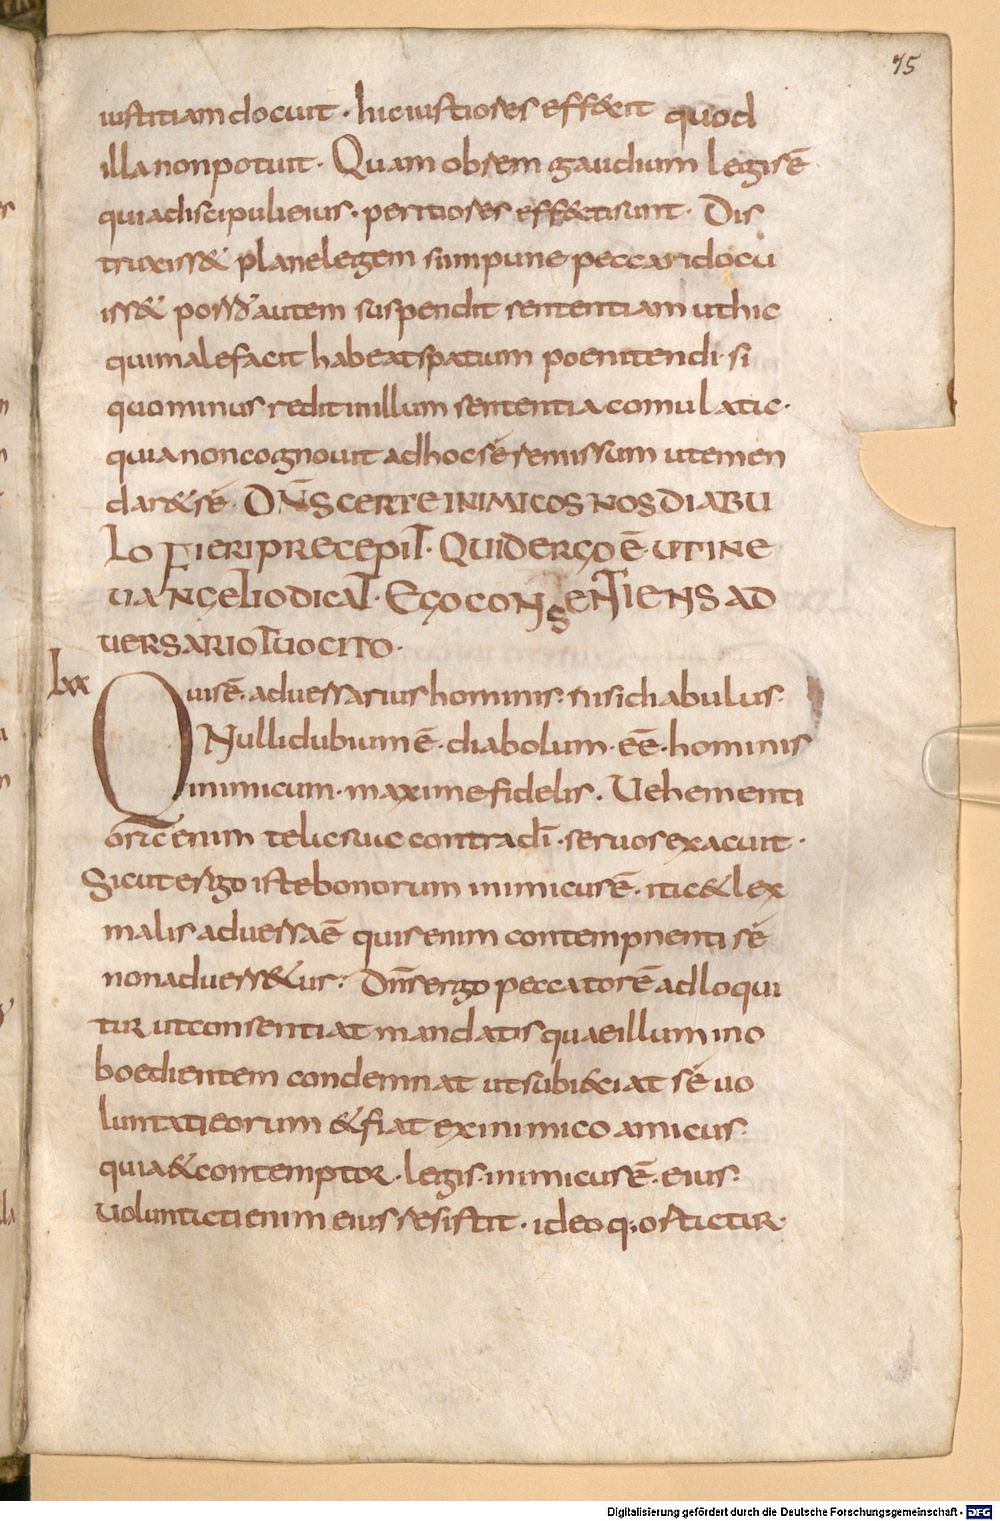 75
iustitiam docuit · hic iustiores eff&cit quod
illa non potuit · Quam obrem gaudium legis ē
quia discipuli eius · peritiores eff&ti sunt · Dis
truxiss& plane legem si inpune peccari docu
iss& poss& autem suspendit sententiam ut hic
qui male facit habeat spatium poenitendi · si
quo minus redit in illum sententia comulatic ·
quia non cognouit ad hoc sé remissum ut emen
dar& sé · DN̄S CERTE INIMICOS NOS DIABU
LO FIERI PRECEPIT · QUID ERGO Ē UT IN E
UANGELIO DICAT · EGO CONSENTIENS AD
UERSARIO TUO CITO ·
lxx
Quis ē · aduersarius hominis · nisi diabulus ·
Nulli dubium ē · diabolum · eē · hominis
inimicum · maxime fidelis · Uehementi
oric enim telic suic contra dī · seruos exacuit ·
Sicut ergo iste bonorum inimicus ē · itic & lex
malis aduersa ē quis enim contempnenti sé
non aduers&ur · Dn̄s ergo peccatorē adloqui
tur ut consentiat mandatis quae illum ino
boedientem condemnat ut subi&ciat sé uo
luntati eorum & fiat ex inimico amicus ·
quia & contemptor · legis · inimicus ē · eius ·
uolunticti enim eius resistit · ideoq; ostictur ·
Digitalisierung gefördert durch die Deutsche Forschungsgemeinschaft - DFG